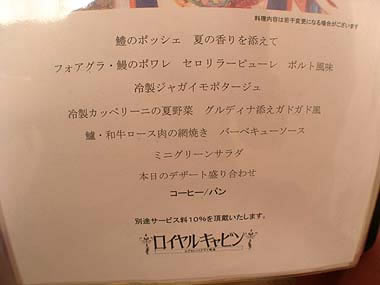 料理内容は若干変更になる場合がございます
鱧のポッシェ 夏の香りを添えて
フォアグラ・鰻のポワレ セロリラーピューレ ポルト風味
冷製ジャガイモポタージュ
冷製カッペリーニの夏野菜 グルディナ添えガドガド風
鱸・和牛ロース肉の網焼き バーベキューソース
ミニグリーンサラダ
本日のデザート盛り合わせ
コーヒー/パン
別途サービス料10%を頂戴いたします。
ロイヤルキャビン